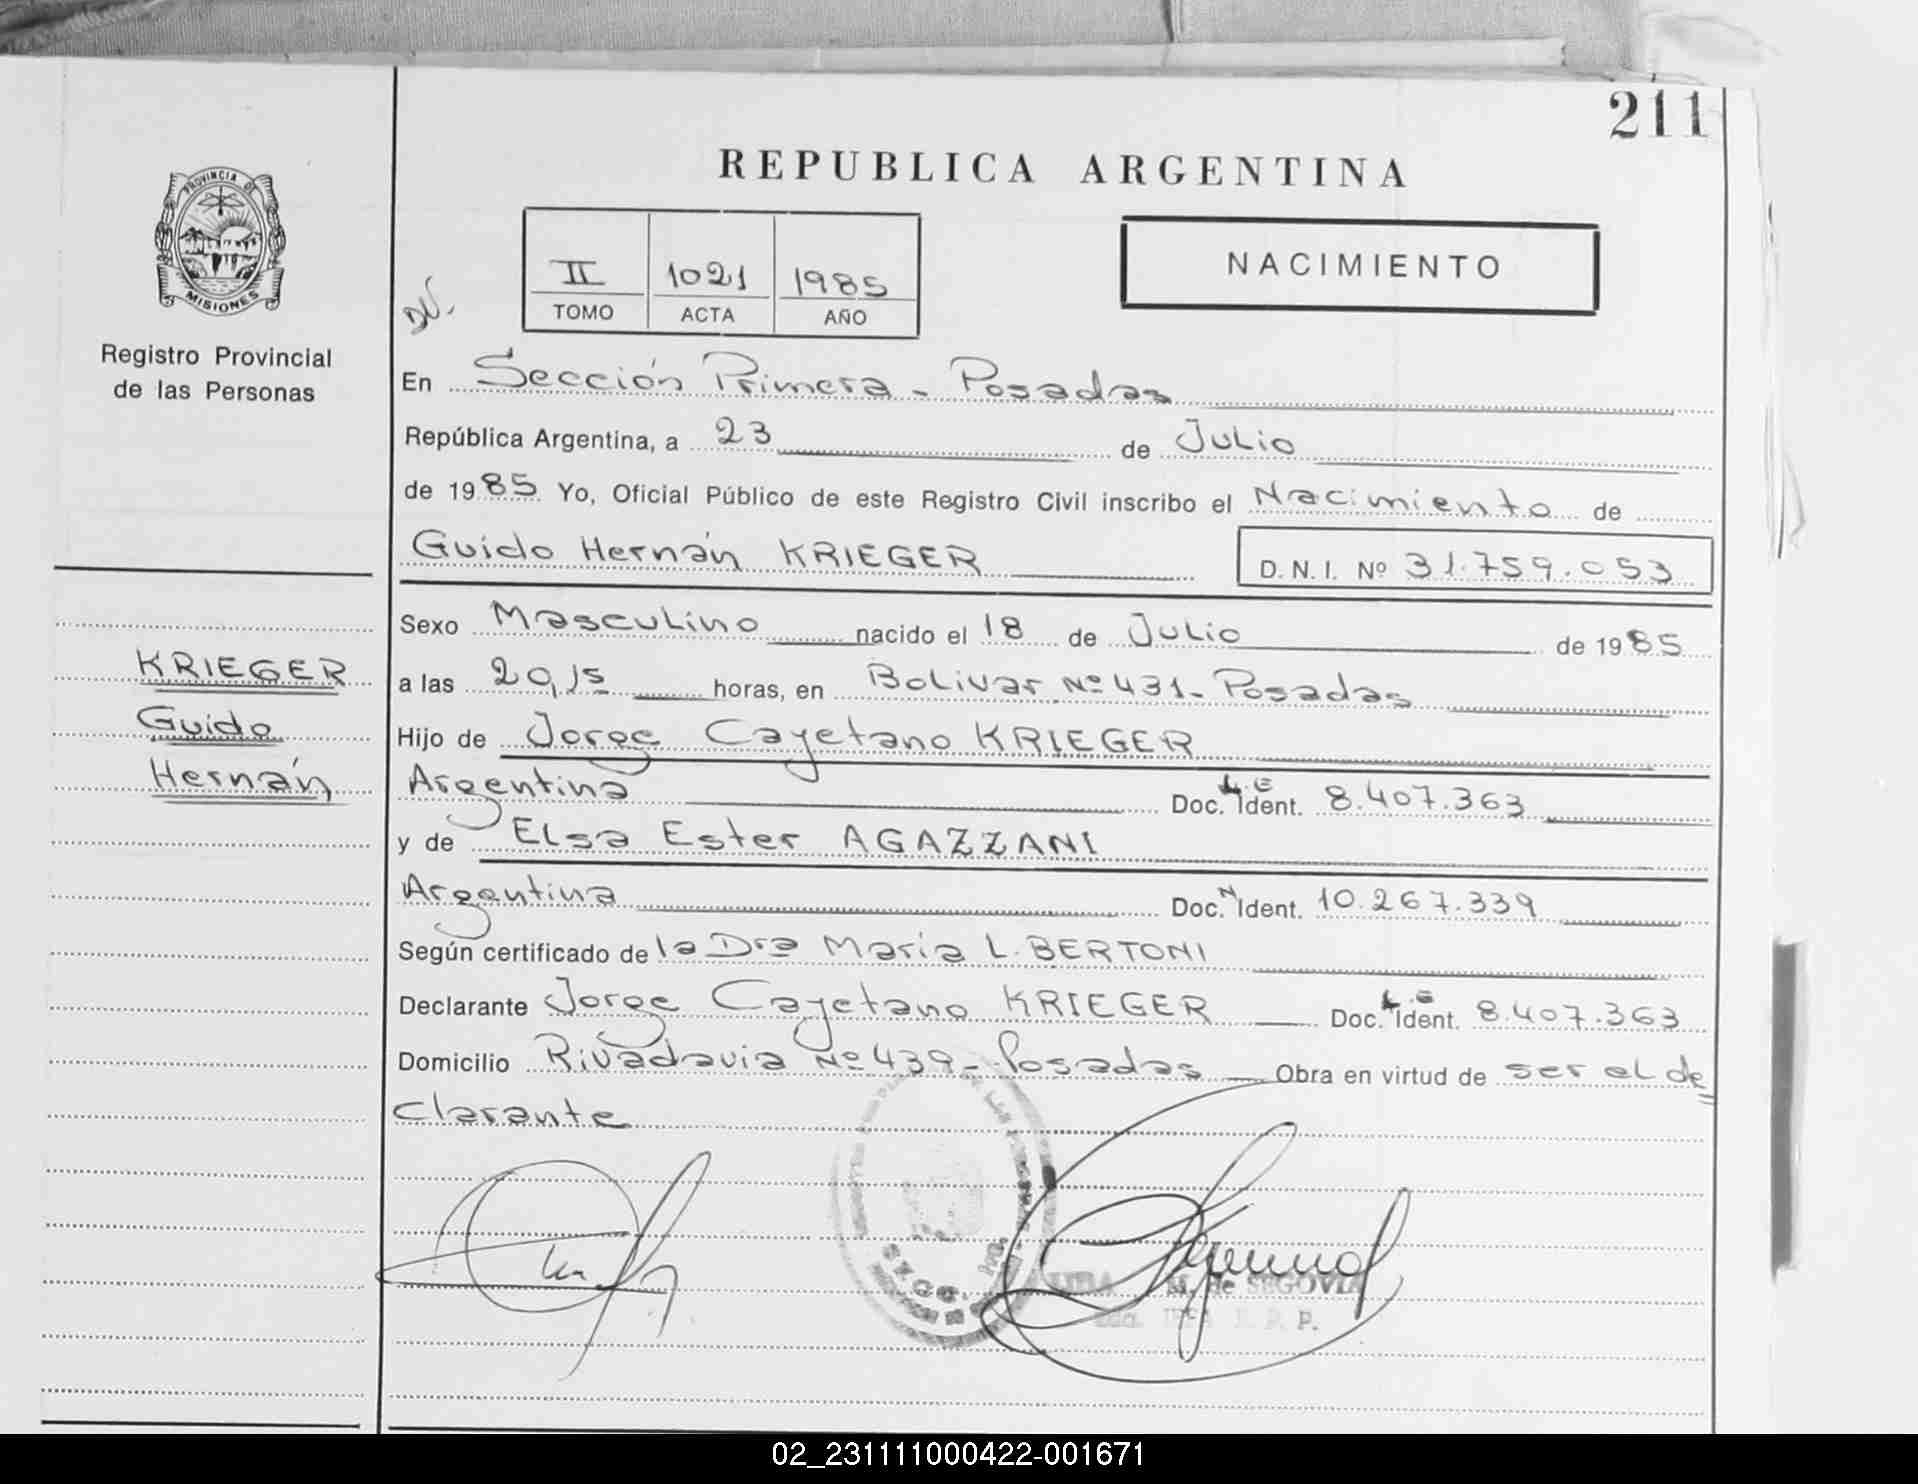 211
REPUBLICA ARGENTINA
PROVINCIA DE
MISIONES
Registro Provincial
de las Personas
II 1021 1985
TOMO ACTA AÑO
NACIMIENTO
En Sección Primera - Posadas
República Argentina, a 23 de Julio
de 1985 Yo, Oficial Público de este Registro Civil inscribo el Nacimiento de
Guido Hernán KRIEGER D. N. I. Nº 31.759.053
Sexo Masculino nacido el 18 de Julio de 1985
KRIEGER
Guido
Hernán
a las 20,15 horas, en Bolivar Nº 431 - Posadas
Hijo de Jorge Cayetano KRIEGER
Argentina Doc. L.E Ident. 8.407.363
y de Elsa Ester AGAZZANI
Argentina Doc. N Ident. 10.267.339
Según certificado de la Dra María L. BERTONI
Declarante Jorge Cayetano KRIEGER Doc. L.E Ident. 8.407.363
Domicilio Rivadavia Nº 439 - Posadas Obra en virtud de ser el de
clarante
M. de SEGOVIA
02_231111000422-001671